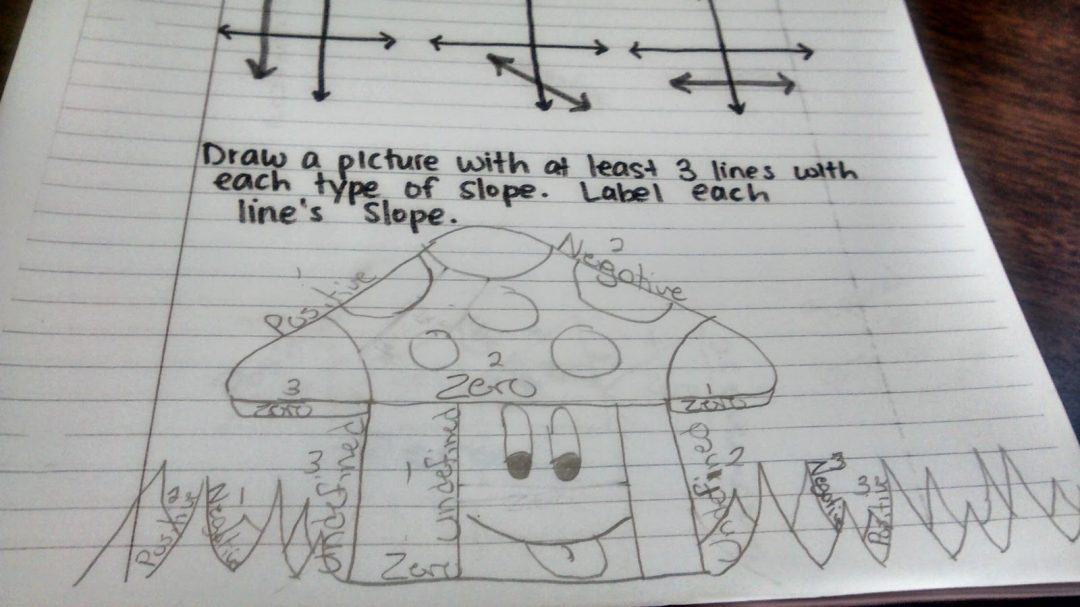 Draw a picture with at least 3 lines with
each type of slope. Label each
line's Slope.
1
Positive
2
Negative
2
Zero
3
Zero
1
Zero
3
Undefined
1
Undefined
Undefined
2
2
Positive
1
Negative
3
Negative
3
Positive
Zero